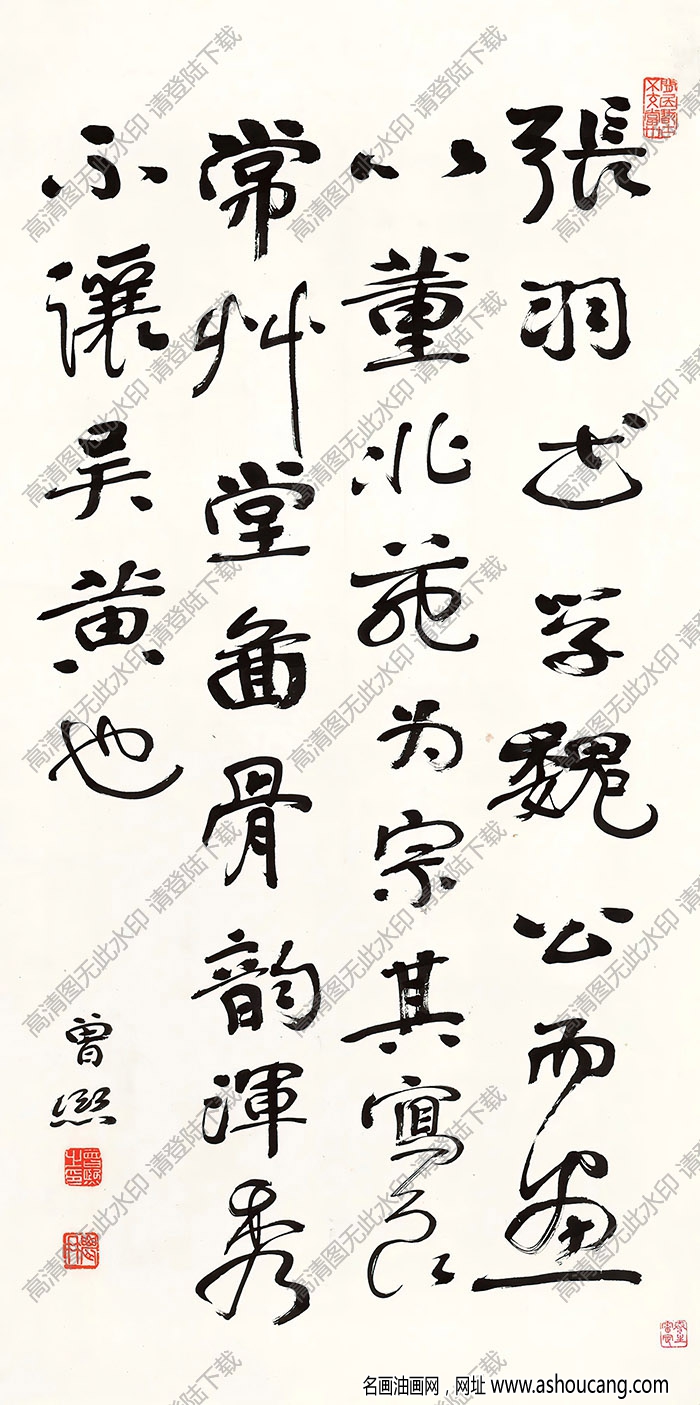 張羽学魏公而畫
以董北苑为宗其寫良
常艸堂啚骨韵渾秀
不讓吴黄也
曾熙
曾熙之印
農髯
高清图无此水印 请登陆下载
名画油画网，网址 www.ashoucang.com